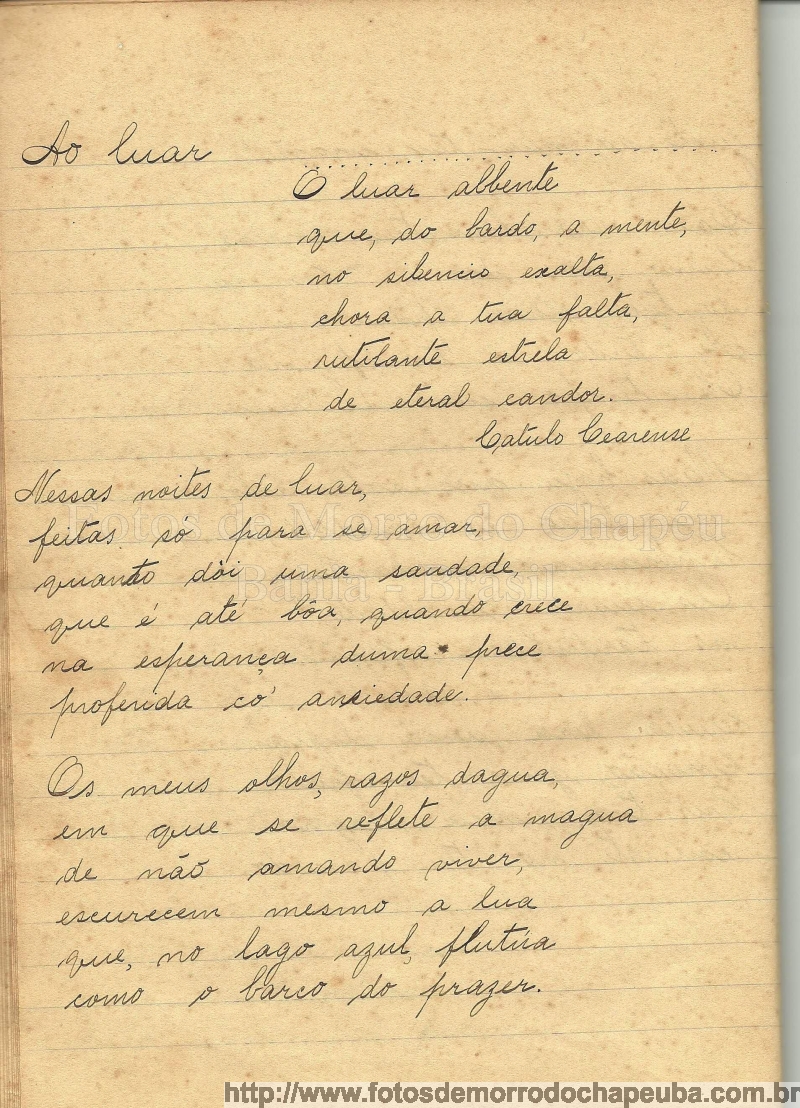 Ao luar
O luar albente
que, do bardo, a mente,
no silencio exalta,
chora a tua falta,
rutilante estrela
de eteral candor.
Catulo Cearense
Nessas noites de luar,
feitas só para se amar,
quanto dói uma saudade,
que é até bôa, quando crece
na esperança duma prece
proferida co' anciedade.
Os meus olhos, razos dagua,
em que se reflete a magua
de não amando viver,
escurecem mesmo a lua
que, no lago azul, flutúa
como o barco do prazer.
Fotos de Morro do Chapéu
Bahia - Brasil
http://www.fotosdemorrodochapeuba.com.br